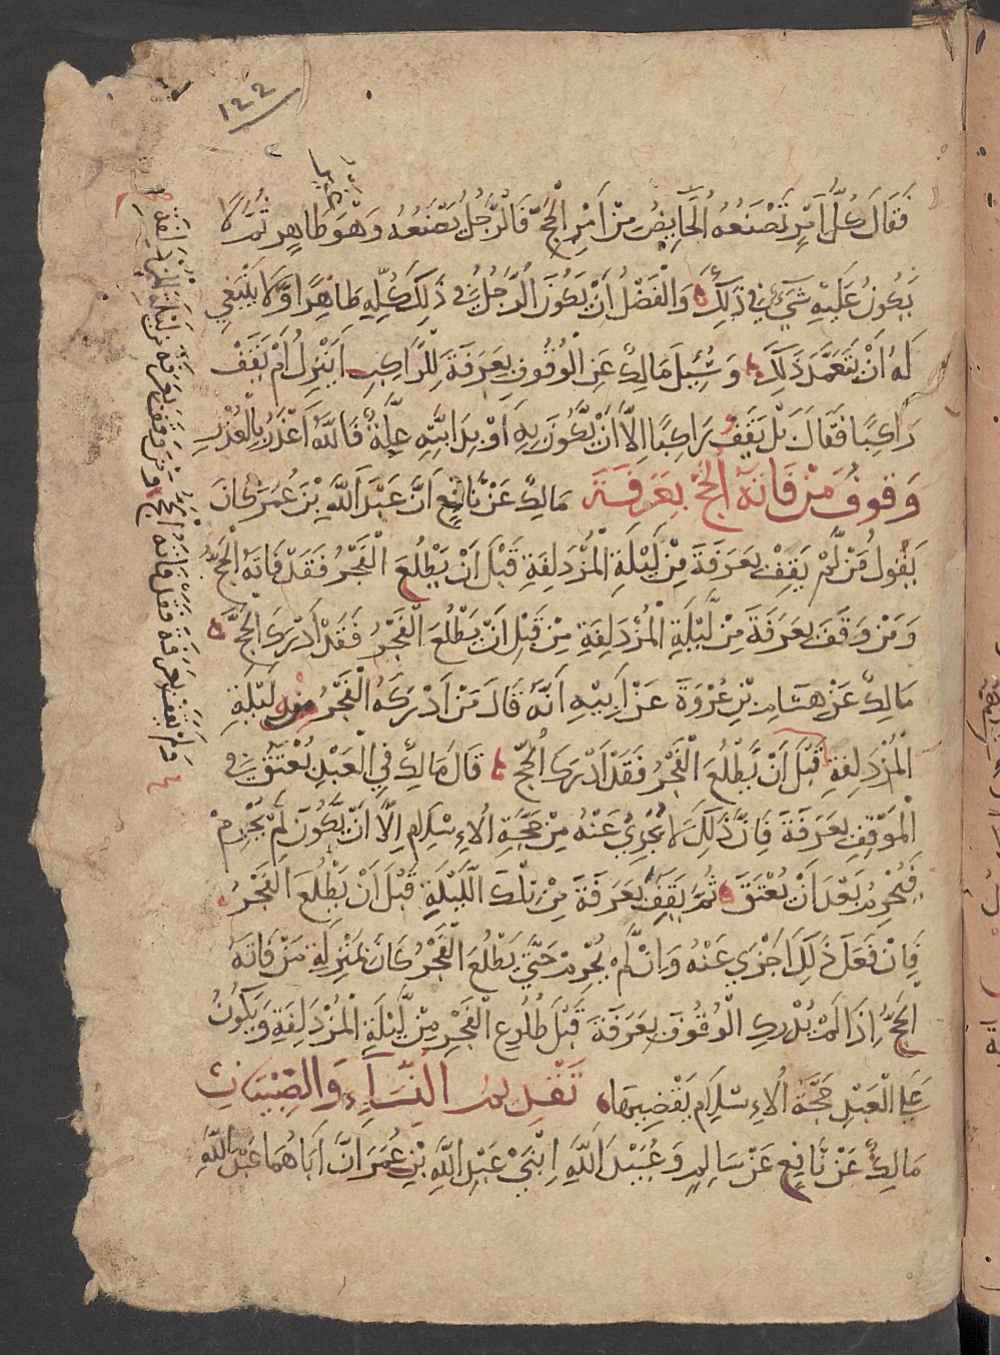 ١٢٢
فَقَالَ كُلُّ أَمْرٍ تَصْنَعُهُ الْحَايِضُ مِنْ أَمْرِ الْحَجِّ فَالرَّجُلُ يَصْنَعُهُ وَهْوَ طَاهِرٍ ثُمَّ لَا
يَكُونُ عَلَيْهِ شَيْءٌ فِي ذَلِكَ وَالْفَضْلُ أَنْ يَكُونَ الرَّجُلُ فِي ذَلِكَ كُلِّهِ طَاهِرًا وَلَا يَنْبَغِي
لَهُ أَنْ يَتَعَمَّدَ ذَلِكَ وَسُئِلَ مَالِكٌ عَنِ الْوُقُوفِ بِعَرَفَةَ لِلرَّاكِبِ أَيَنْزِلُ أَمْ يَقِفُ
رَاكِبًا فَقَالَ بَلْ يَقِفُ رَاكِبًا إِلَّا أَنْ يَكُونَ بِهِ أَوْ بِدَابَّتِهِ عِلَّةٌ فَاللَّهُ أَعْذَرُ بِالْعُذْرِ
وَقُوفُ مَنْ فَاتَهُ الْحَجُّ بِعَرَفَةَ مَالِكٌ عَنْ نَافِعٍ أَنَّ عَبْدَ اللَّهِ بْنَ عُمَرَ كَانَ
يَقُولُ مَنْ لَمْ يَقِفْ بِعَرَفَةَ مِنْ لَيْلَةِ الْمُزْدَلِفَةِ قَبْلَ أَنْ يَطْلُعَ الْفَجْرُ فَقَدْ فَاتَهُ الْحَجُّ
وَمَنْ وَقَفَ بِعَرَفَةَ مِنْ لَيْلَةِ الْمُزْدَلِفَةِ مِنْ قَبْلِ أَنْ يَطْلُعَ الْفَجْرُ فَقَدْ أَدْرَكَ الْحَجَّ
مَالِكٌ عَنْ هِشَامِ بْنِ عُرْوَةَ عَنْ أَبِيهِ أَنَّهُ قَالَ مَنْ أَدْرَكَهُ الْفَجْرُ مِنْ لَيْلَةِ
الْمُزْدَلِفَةِ قَبْلَ أَنْ يَطْلُعَ الْفَجْرُ فَقَدْ أَدْرَكَ الْحَجَّ قَالَ مَالِكٌ فِي الْعَبْدِ يُعْتَقُ فِي
الْمَوْقِفِ بِعَرَفَةَ فَإِنَّ ذَلِكَ لَا يُجْزِي عَنْهُ مِنْ حَجَّةِ الْإِسْلَامِ إِلَّا أَنْ يَكُونَ لَمْ يُحْرِمْ
فَيُحْرِمُ بَعْدَ أَنْ يُعْتَقَ ثُمَّ يَقِفُ بِعَرَفَةَ مِنْ تِلْكَ اللَّيْلَةِ قَبْلَ أَنْ يَطْلُعَ الْفَجْرُ
فَإِنْ فَعَلَ ذَلِكَ أَجْزَى عَنْهُ وَإِنْ لَمْ يُحْرِمْ حَتَّى يَطْلُعَ الْفَجْرُ كَانَ بِمَنْزِلَةِ مَنْ فَاتَهُ
الْحَجُّ إِذَا لَمْ يُدْرِكِ الْوُقُوفَ بِعَرَفَةَ قَبْلَ طُلُوعِ الْفَجْرِ مِنْ لَيْلَةِ الْمُزْدَلِفَةِ وَيَكُونُ
عَلَى الْعَبْدِ حَجَّةُ الْإِسْلَامِ يَقْضِيهَا تَقْدِيمُ النِّسَاءِ وَالصِّبْيَانِ
مَالِكٌ عَنْ نَافِعٍ عَنْ سَالِمٍ وَعُبَيْدِ اللَّهِ ابْنَيْ عَبْدِ اللَّهِ بْنِ عُمَرَ أَنَّ أَبَاهُمَا عَبْدَ اللَّهِ